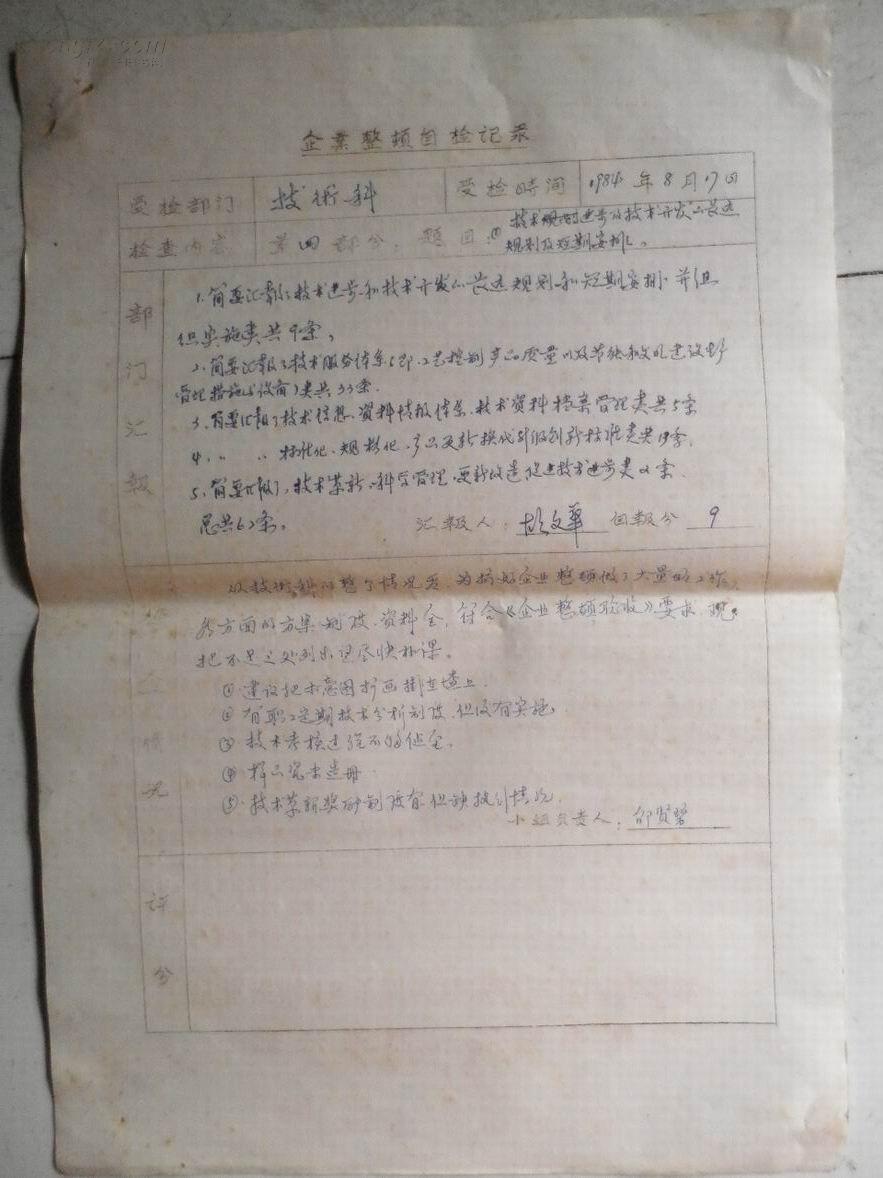 企業整頓自检记录
受检部门 技術科 受检时间 1984年8月17日
检查内容 第四部分，题目：① 技术进步及技术开发的长远
规划及短期安排。
部门汇報
1. 简要汇報了技术进步和技术开发的长远规划和短期安排并组
织实施类共9条，
2. 简要汇報了技术服务体系（即工艺控制产品质量以及节能和文明建设
管理措施与设有）类共33条.
3. 简要汇報了技术信息、资料情报体系、技术资料档案管理类共5条
4. 〃 〃 标准化、规格化、产品更新换代升级创新标准类共19条.
5. 简要汇報了，技术革新、科学管理、更新改造促进技术进步类
总共62条。 汇報人：胡文華 自報分 9
情况
从技術科的整个情况来，为搞好企业整顿做了大量的工作，
各方面的方案制度、资料全，符合《企业整顿验收》要求，现
把不足之处列出望尽快补课。
① 建议把示意图扩画挂在墙上.
② 有职工定期技术分析制度，但没有实施.
③ 技术考核过程不够健全。
④ 样品宪未造册.
⑤ 技术革新奖励制度有但缺执行情况.
小组负责人：邵贤磬
评分